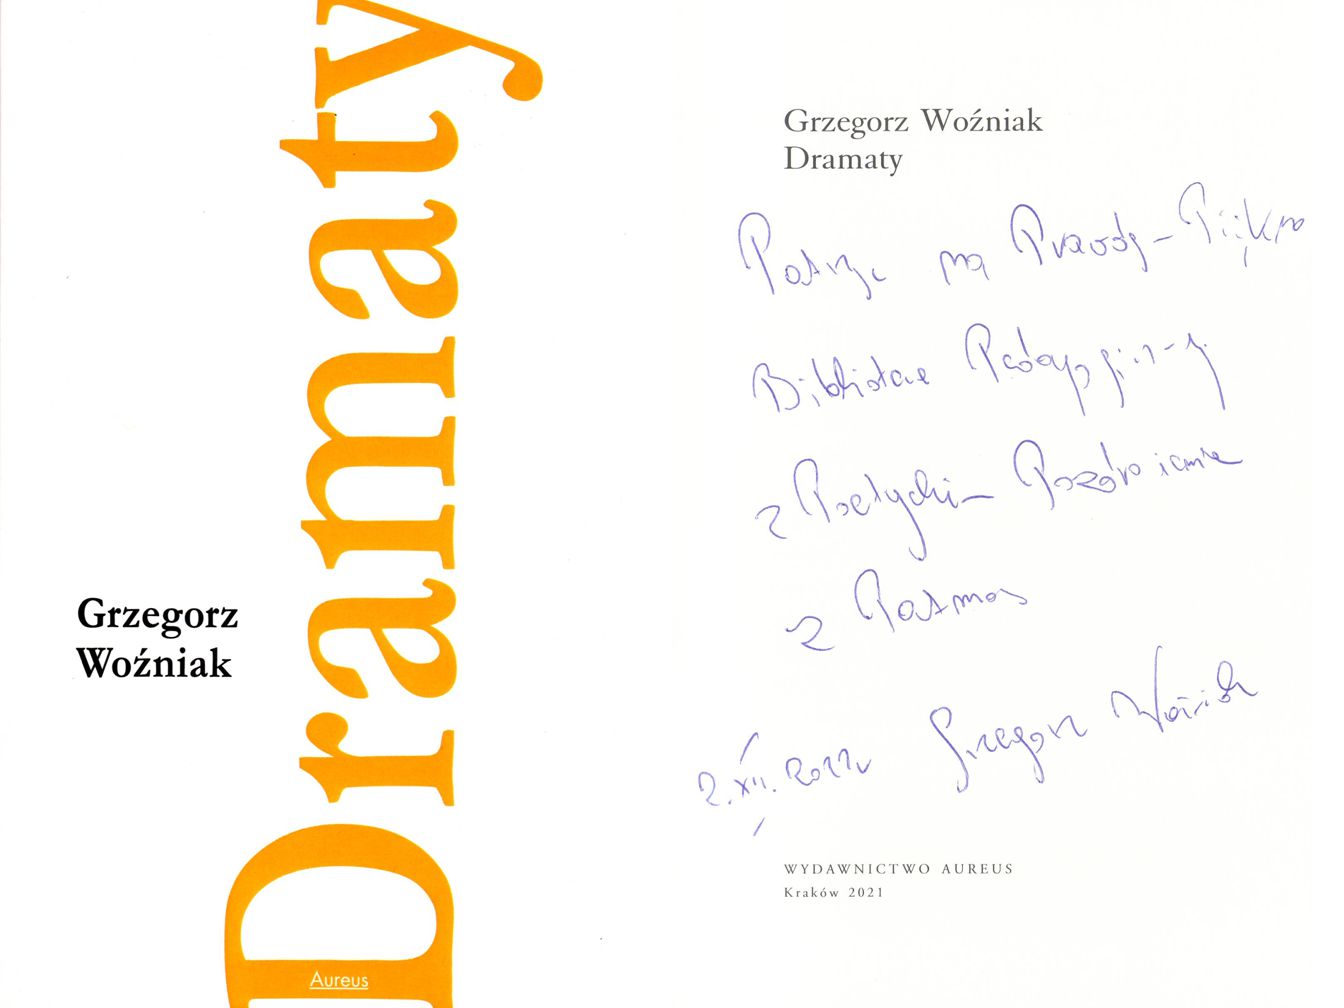 Dramaty
Grzegorz
Woźniak
Aureus
Grzegorz Woźniak
Dramaty
Patrzę na Prawdę - Piękno
Bibliotece Pedagogicznej
z Poetyckim Pozdrowieniem
z Patmos
2. XII. 2022 Grzegorz Woźniak
WYDAWNICTWO AUREUS
Kraków 2021